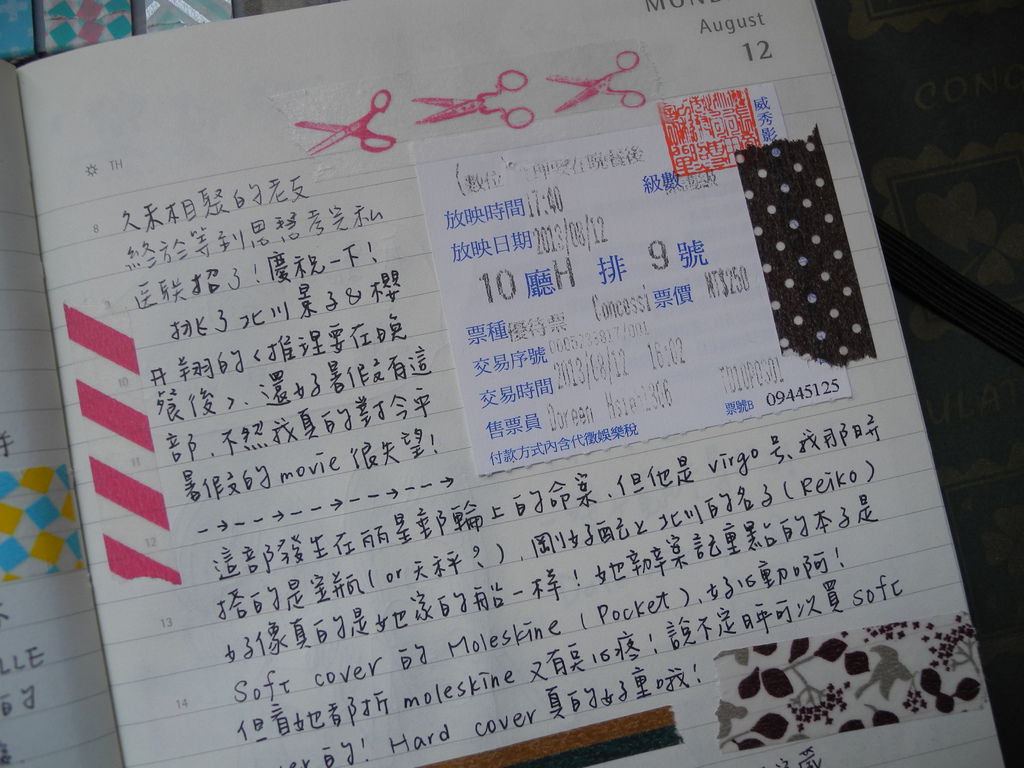 August
12
TH
8
9
10
11
12
13
14
久未相聚的老友
終於等到思
匡聯招了!慶祝一下!
挑了北川景子&櫻
井翔的<推理要在晚
餐後>,還好暑假有這
部,不然我真的對今年
暑假的movie很失望!
這部發生在麗星郵輪上的命案,但他是virgo号,我那時
搭的是寶瓶(or天秤?),剛好配上北川的名子(Reiko)
好像真的是她家的船一樣!她辦案記重點的本子是
Soft cover的Moleskine(Pocket),好心動啊!
但看她都折moleskine又有哀心疼!說不定時可以買soft
的!Hard cover真的好重哦!
威秀影
在晚餐後
級數
放映時間 17:40
放映日期 2013/08/12
10 廳 H 排 9 號
票種 優待票 Concessi 票價 NT$250
交易序號
交易時間 2013/08/12 16:02
售票員 Doreen
付款方式內含代徵娛樂稅
票號B 09445125
LLE
的
CONG
ULAT